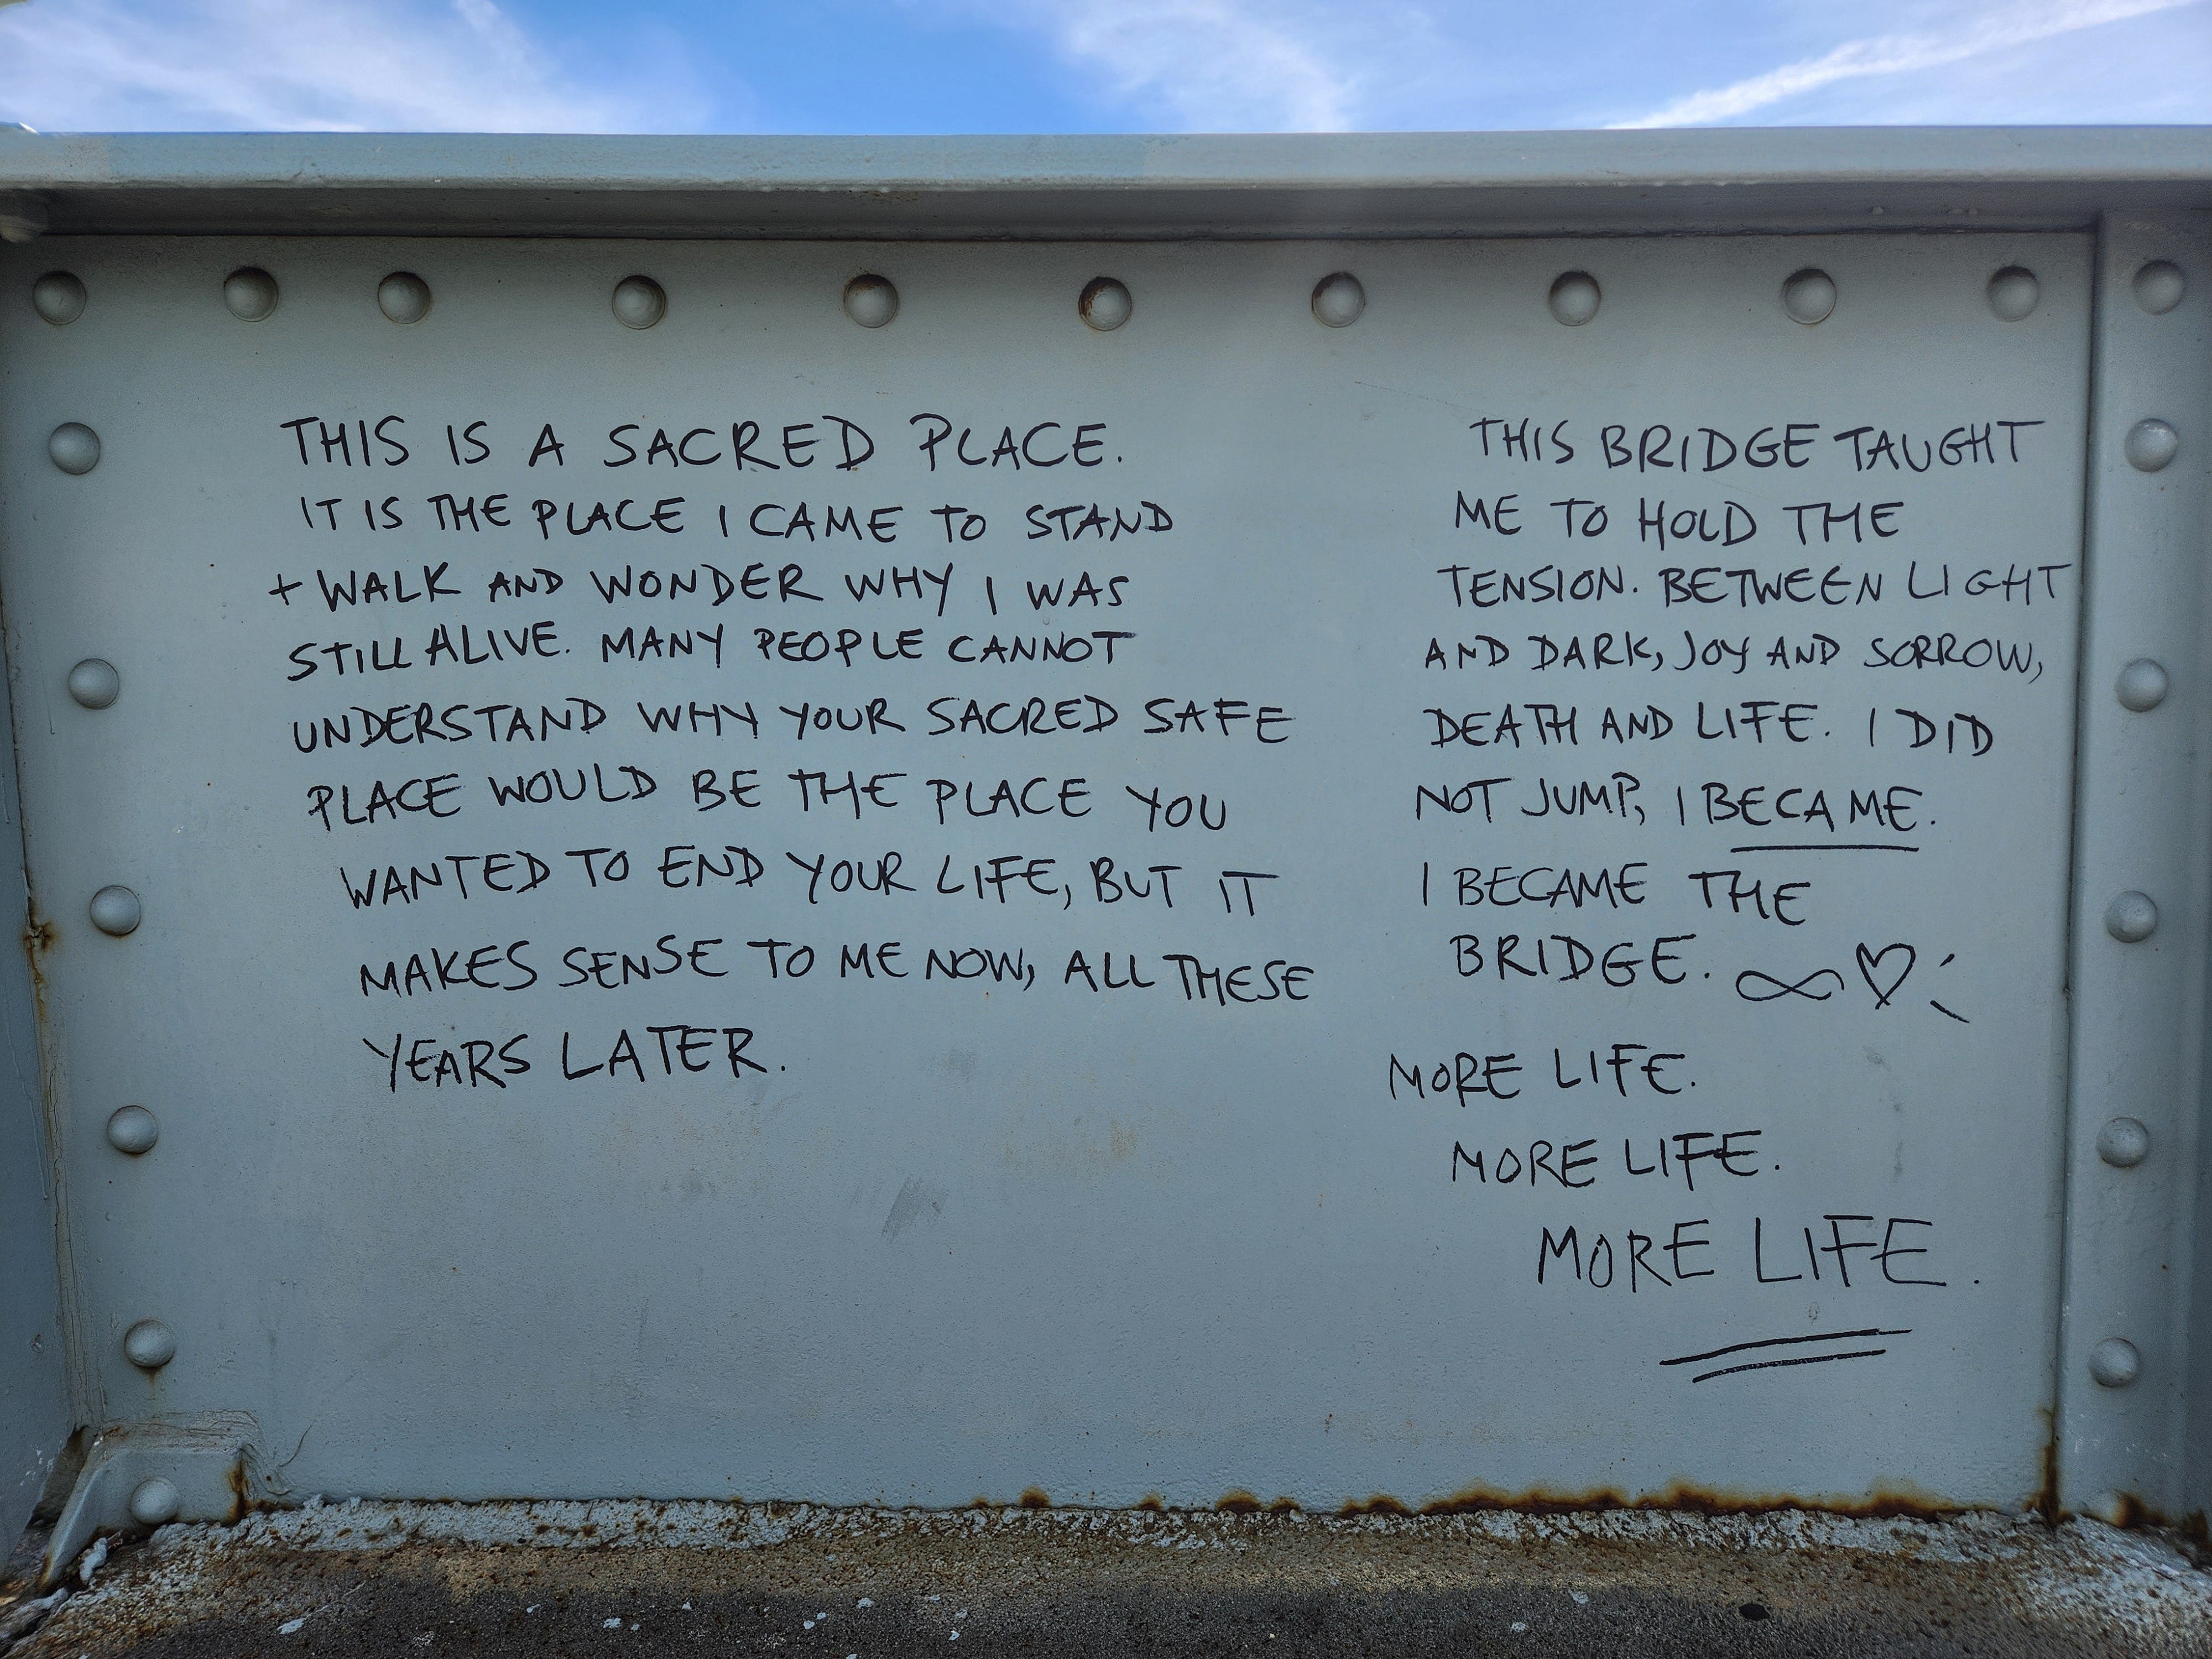 THIS IS A SACRED PLACE.
IT IS THE PLACE I CAME TO STAND
+ WALK AND WONDER WHY I WAS
STILL ALIVE. MANY PEOPLE CANNOT
UNDERSTAND WHY YOUR SACRED SAFE
PLACE WOULD BE THE PLACE YOU
WANTED TO END YOUR LIFE, BUT IT
MAKES SENSE TO ME NOW, ALL THESE
YEARS LATER.
THIS BRIDGE TAUGHT
ME TO HOLD THE
TENSION. BETWEEN LIGHT
AND DARK, JOY AND SORROW,
DEATH AND LIFE. I DID
NOT JUMP, I BECAME.
I BECAME THE
BRIDGE. ∞♡
MORE LIFE.
MORE LIFE.
MORE LIFE.